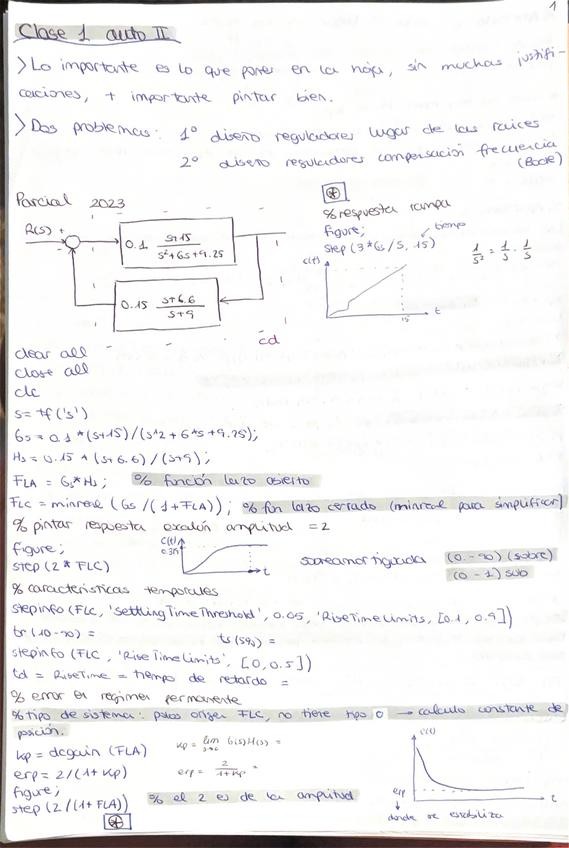 1
Clase 1 auto II
> Lo importante es lo que pones en la hoja, sin muchas justifi-
caciones, + importante pintar bien.
> Dos problemas: 1º diseño reguladores lugar de las raices
2º diseño reguladores compensación frecuencia
(Bode)
Parcial 2023
R(s) +
-
0.1 s+15 / s²+6s+9.25
0.15 s+6.6 / s+9
cd
⊛
% respuesta rampa
figure;
step (3*Gs/s, 15)
tiempo
1/s² = 1/s · 1/s
c(t)
15
t
clear all
close all
clc
s= tf('s')
Gs = 0.1 *(s+15)/(s^2 + 6*s+9.25);
Hs = 0.15 * (s+6.6)/(s+9);
FLA = Gs*Hs; % función lazo abierto
FLC = minreal (Gs/(1+FLA)); % fun lazo cerrado (minreal para simplificar)
% pintar respuesta escalón amplitud = 2
figure;
step (2*FLC)
c(t)
t
sobreamortiguada
(0.-90) (sobre)
(0-1) sub
% características temporales
stepinfo (FLC, 'SettlingTimeThreshold', 0.05, 'RiseTimeLimits, [0.1, 0.9])
tr (10-90) =
ts (5%) =
stepinfo (FLC, 'RiseTimeLimits', [0,0.5])
td = RiseTime = tiempo de retardo =
% error en regimen permanente
% tipo de sistema: polos origen FLC, no tiene tipo 0 → calculo constante de
posición.
kp = dcgain (FLA)
erp = 2/(1+kp)
figure;
step (2/(1+FLA)) % el 2 es de la amplitud
⊛
kp = lim s→0 G(s)H(s) =
erp = 2/1+kp =
c(t)
erp
t
donde se estabiliza